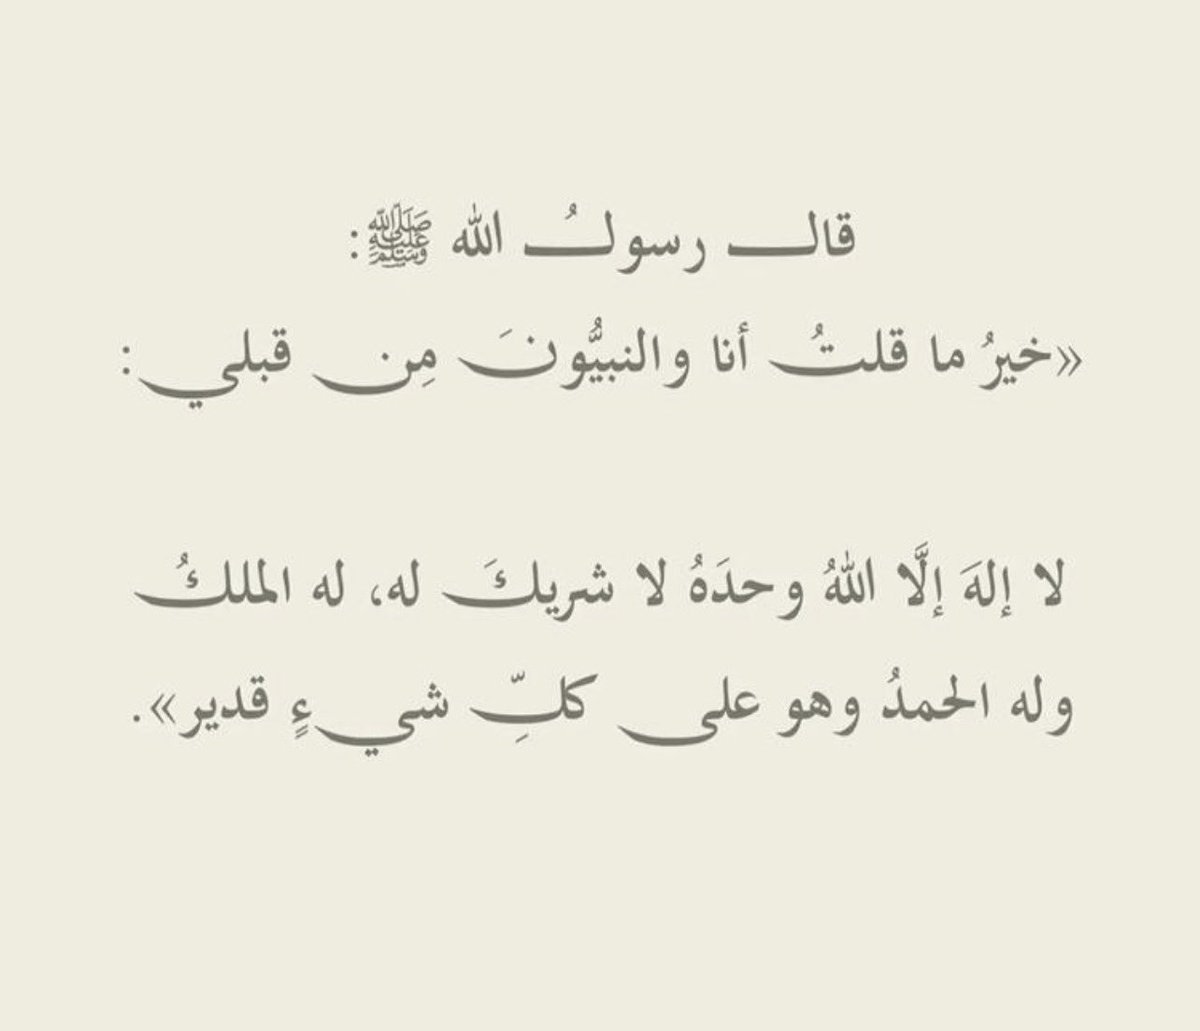 قال رسولُ الله ﷺ:
«خيرُ ما قلتُ أنا والنبيُّونَ مِن قبلي:
لا إلهَ إلَّا اللهُ وحدَهُ لا شريكَ له، له الملكُ
وله الحمدُ وهو على كلِّ شيءٍ قدير».